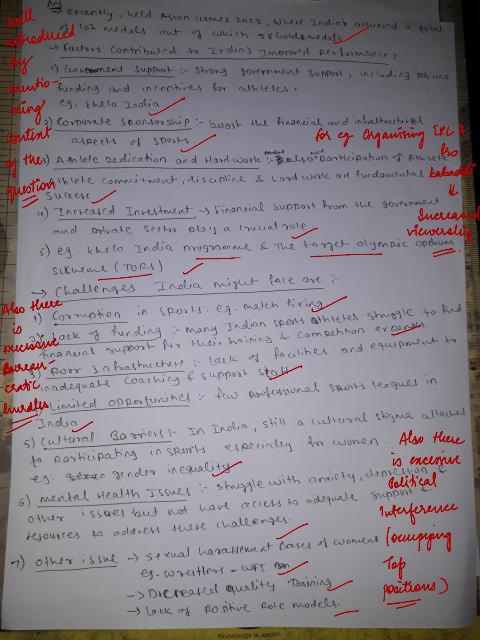 Ans Recently, held Asian Games 2023, where India achieved a total
of 107 medals out of which 28 Gold medals
→ Factors contributed to India's Improved performance:
1) Government Support :- Strong government support, including policies
funding and incentives for athletes.
eg. Khelo India
2) Corporate Sponsorship :- boost the financial and infrastructural
aspects of sports
3) Athlete Dedication and Hard work :- also participation of Athlete
Athlete commitment, discipline & hard work are fundamental
success
4) Increased Investment → Financial support from the government
and private sector play a crucial role
5) eg. Khelo India programme & the target olympic
scheme (TOPS)
→ Challenges India might face are :-
1) Corruption in sports. eg. match fixing
2) Lack of funding :- many Indian sports athletes struggle to find
financial support for their training & competition expenses.
3) Poor Infrastructure :- lack of facilities and equipment to
inadequate coaching & support staff
Limited Opportunities :- few professional sports leagues in
India
5) Cultural Barriers :- In India, still a cultural stigma attached
to participating in sports especially for women.
eg. gender inequality
6) Mental Health Issues :- struggle with anxiety, depression &
other issues but not have access to adequate support &
resources to address these challenges.
7) Other issue → Sexual harassment cases of women
eg. wrestlers - WFI
→ Decreased quality Training
→ Lack of Positive Role models.
Well
introduced
by
mentio-
ning
content
of the
question
for eg Organising
Pro
kabaddi
↓
Increased
viewership
Also there
is
excessive
Bureau-
cratic
hurdles
Also there
is excessive
Political
Interference
(occupying
Top
positions)
Knowledge is wealth